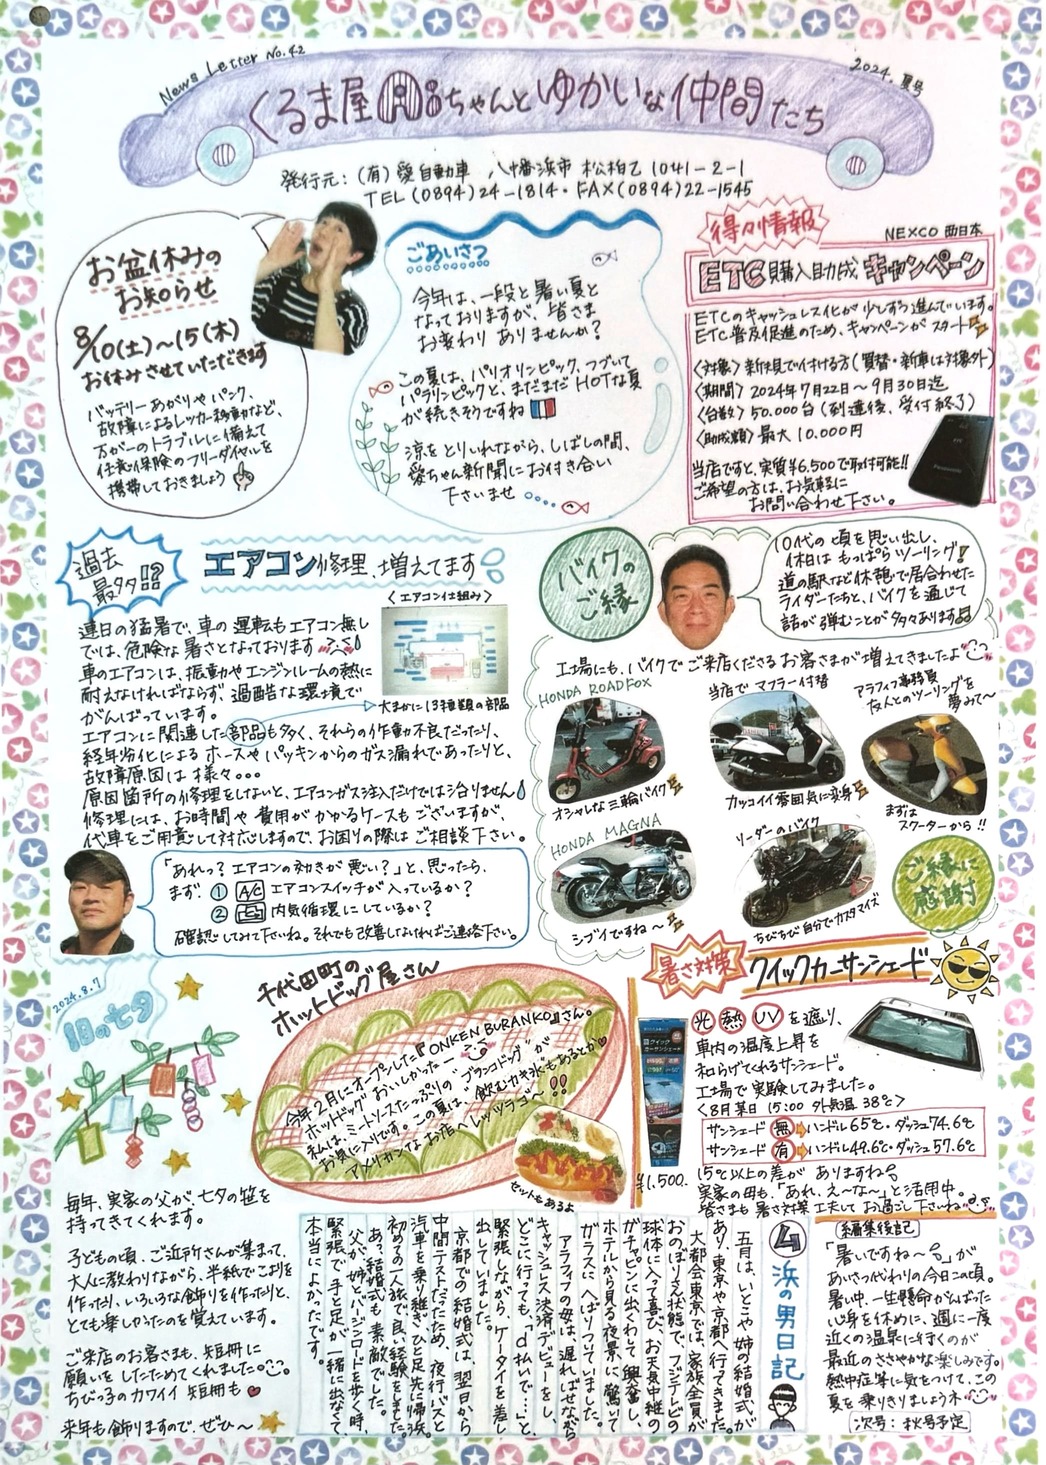 News Letter No.42
2024.夏号
くるま屋Aiちゃんとゆかいな仲間たち
発行元:(有)愛自動車 八幡浜市 松柏乙1041-2-1
TEL(0894)24-1814・FAX(0894)22-1545
お盆休みの
お知らせ
8/10(土)〜15(木)
お休みさせていただきます
バッテリーあがりやパンク、
故障によるレッカー移動など、
万が一のトラブルに備えて
任意保険のフリーダイヤルを
携帯しておきましょう
ごあいさつ
今年は、一段と暑い夏と
なっておりますが、皆さま
お変わりありませんか?
この夏は、パリオリンピック、つづいて
パラリンピックと、まだまだHOTな夏
が続きそうですね
涼をとりいれながら、しばしの間、
愛ちゃん新聞にお付き合い
下さいませ
得々情報
NEXCO 西日本
ETC購入助成キャンペーン
ETCのキャッシュレス化が少しずつ進んでいます。
ETC普及促進のため、キャンペーンがスタート
〈対象〉新規で付ける方(買替・新車は対象外)
〈期間〉2024年7月22日〜9月30日迄
〈台数〉50.000台(到達後、受付終了)
〈助成額〉最大10.000円
当店ですと、実質¥6,500で取付可能!!
ご希望の方は、お気軽に
お問い合わせ下さい。
過去
最多!?
エアコン修理、増えてます
〈エアコン仕組み〉
連日の猛暑で、車の運転もエアコン無し
では、危険な暑さとなっております
車のエアコンは、振動やエンジンルームの熱に
耐えなければならず、過酷な環境で
がんばっています。
大まかに13種類の部品
エアコンに関連した部品も多く、それらの作動不良だったり、
経年劣化によるホースやパッキンからのガス漏れであったりと、
故障原因は様々...
原因箇所の修理をしないと、エアコンガス注入だけでは治りません
修理には、お時間や費用がかかるケースもございますが、
代車をご用意して対応しますので、お困りの際はご相談下さい。
「あれっ?エアコンの効きが悪い?」と、思ったら、
まず、① A/C エアコンスイッチが入っているか?
② 内気循環にしているか?
確認してみて下さいね。それでも改善しなければご連絡下さい。
バイクの
ご縁
10代の頃を思い出し、
休日はもっぱらツーリング!
道の駅など休憩で居合わせた
ライダーたちと、バイクを通じて
話が弾むことが多々あります
工場にも、バイクでご来店くださるお客さまが増えてきましたよ
HONDA ROADFOX
オシャレな三輪バイク
当店でマフラー付替
カッコイイ雰囲気に変身
アラフィフ事務員
友人とのツーリングを
夢みて〜
まずは
スクーターから!!
HONDA MAGNA
シブイですね〜
リーダーのバイク
ちびちび自分でカスタマイズ
ご縁に
感謝
2024.8.7
旧の七夕
毎年、実家の父が、七夕の笹を
持ってきてくれます。
子どもの頃、ご近所さんが集まって、
大人に教わりながら、半紙でこよりを
作ったり、いろいろな飾りを作ったりと、
とても楽しかったのを覚えています。
ご来店のお客さまも、短冊に
願いをしたためてくれました。
ちびっ子のカワイイ短冊も
来年も飾りますので、ぜひ〜
千代田町の
ホットドッグ屋さん
今年2月にオープンした『ONKEN BURANKO』さん。
ホットドッグおいしかったー
私は、ミートソースたっぷりの"ブランコドッグ"が
お気に入りです。この夏は、飲むカキ氷もあるとか
アメリカンなお店へレッツラゴ〜!!
セットもあるよ
暑さ対策
クイックカーサンシェード
¥1,500.
光 熱 UVを遮り、
車内の温度上昇を
和らげてくれるサンシェード。
工場で実験してみました。
〈8月某日 15:00 外気温38℃〉
サンシェード 無 ハンドル65℃・ダッシュ74.6℃
サンシェード 有 ハンドル49.6℃・ダッシュ57.6℃
15℃以上の差がありますね
実家の母も、「あれ、え〜な〜」と活用中。
皆さまも暑さ対策工夫してお過ごし下さいね
④浜の男日記
五月は、いとこや姉の結婚式が
あり、東京や京都へ行ってきました。
大都会東京では、家族全員が
おのぼりさん状態で、フジテレビの
球体に入って喜び、お天気中継の
ガチャピンに出くわして興奮し、
ホテルから見る夜景に驚いて
ガラスにへばりついていました。
アラフィフの母は、遅ればせながら
キャッシュレス決済デビューをし、
どこに行っても、「d払いで…」と、
緊張しながら、ケータイを差し
出していました。
京都での結婚式は、翌日から
中間テストだったため、夜行バスと
汽車を乗り継ぎひと足先に帰浜。
初めての一人旅で、良い経験をしました。
あっ、結婚式も、素敵でした。
父が、姉とバージンロードを歩く時、
緊張で、手と足が一緒に出なくて、
本当によかったです。
編集後記
「暑いですね〜」が
あいさつ代わりの今日この頃。
暑い中、一生懸命がんばった
心身を休めに、週に一度
近くの温泉に行くのが
最近のささやかな楽しみです。
熱中症等に気をつけて、この
夏を乗りきりましょうネ
次号:秋号予定